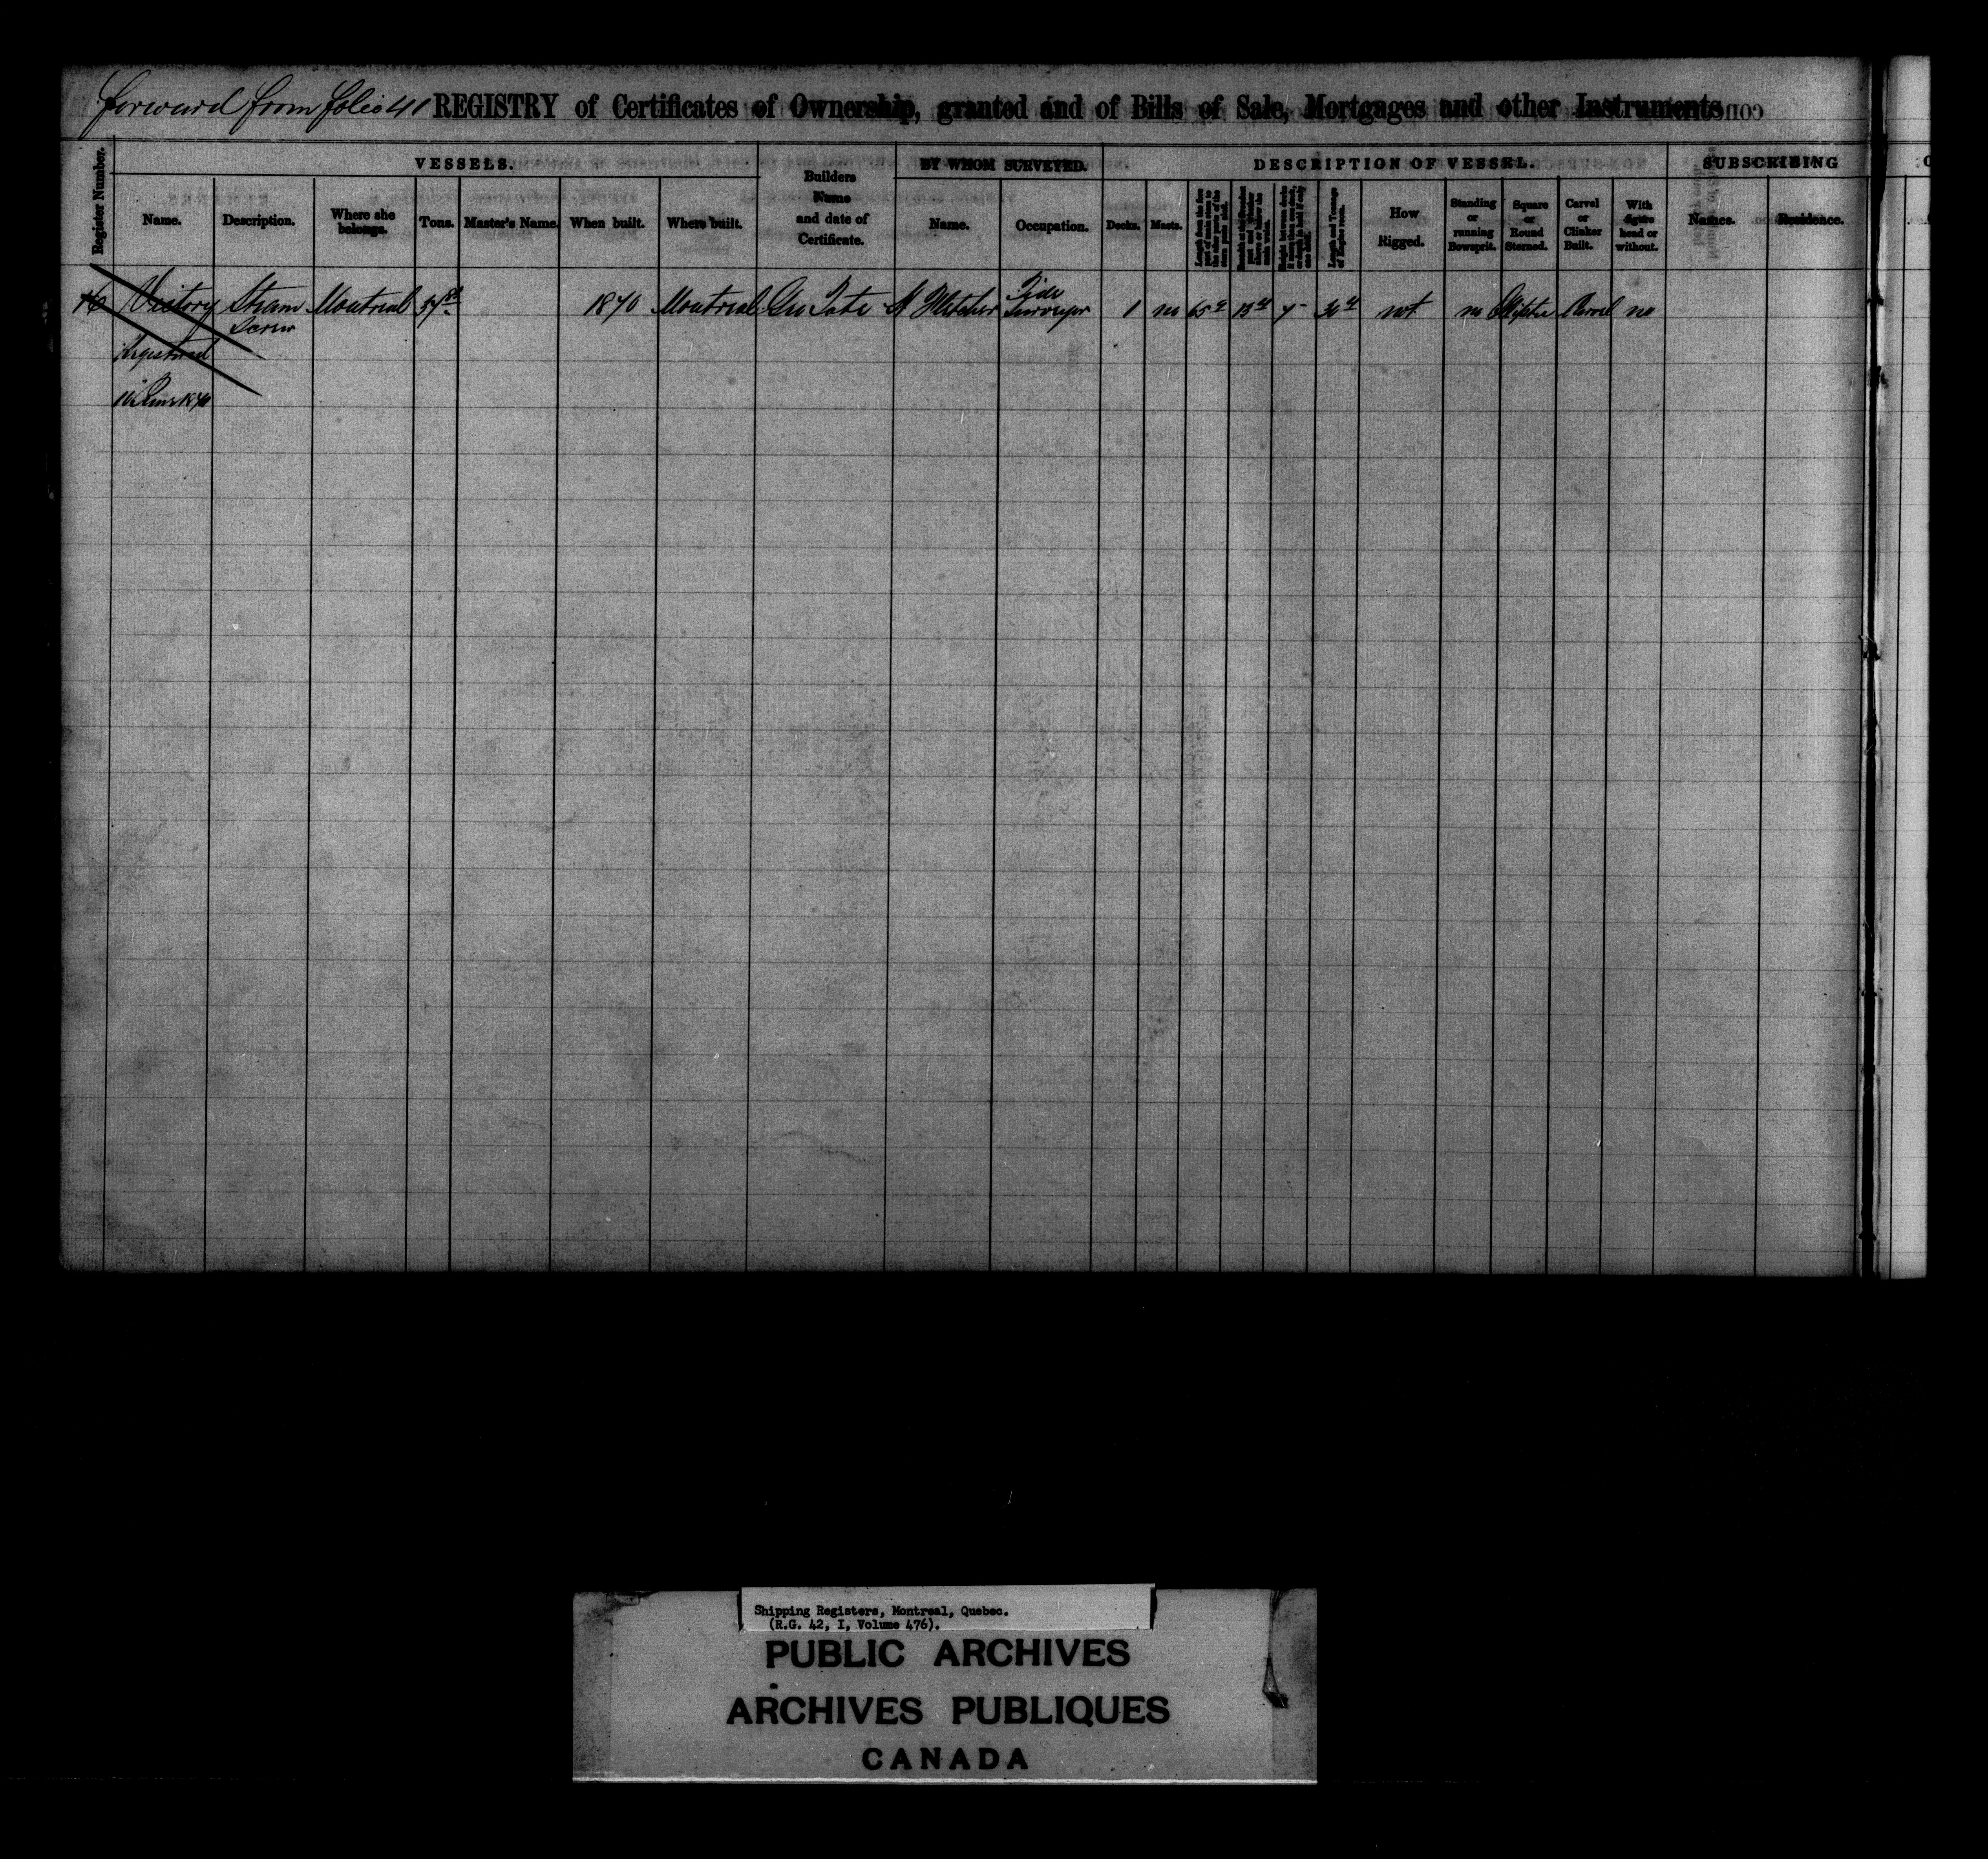 forward from folio 41 REGISTRY of Certificates of Ownership, granted and of Bills of Sale, Mortgages and other Instruments
Register Number.
VESSELS.
Name.
Description.
Where she belongs.
Tons.
Master's Name.
When built.
Where built.
Builders
Name
and date of
Certificate.
BY WHOM SURVEYED.
Name.
Occupation.
DESCRIPTION OF VESSEL.
Decks.
Masts.
How
Rigged.
Standing
or
running
Bowsprit.
Square
or
Round
Sterned.
Carvel
or
Clinker
Built.
With
figure
head or
without.
SUBSCRIBING
Names.
Residence.
16 Victory Steam Screw Montreal 1870 Montreal Geo Tate Tide Surveyor 1 no not no Carvel no
Registered
Shipping Registers, Montreal, Quebec.
(R.G. 42, I, Volume 476).
PUBLIC ARCHIVES
ARCHIVES PUBLIQUES
CANADA